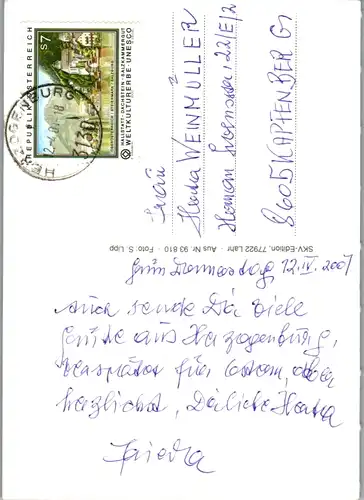 REPUBLIK ÖSTERREICH
S7
HALLSTATT-DACHSTEIN-SALZKAMMERGUT
WELTKULTURERBE-UNESCO
HERZOGENBURG
3130
Frau
Herta WEINMÜLLER
22/E/2
8605 KAPFENBERG
SKV-Edition, 77922 Lahr · Aus Nr. 93 810 · Foto: S. Lipp
Gründonnerstag, 12.IV. 2001
Auch sende Dir viele
Grüße aus Herzogenburg,
verspätet für Ostern, aber
herzlichst, Dir liebe Herta
Frieda